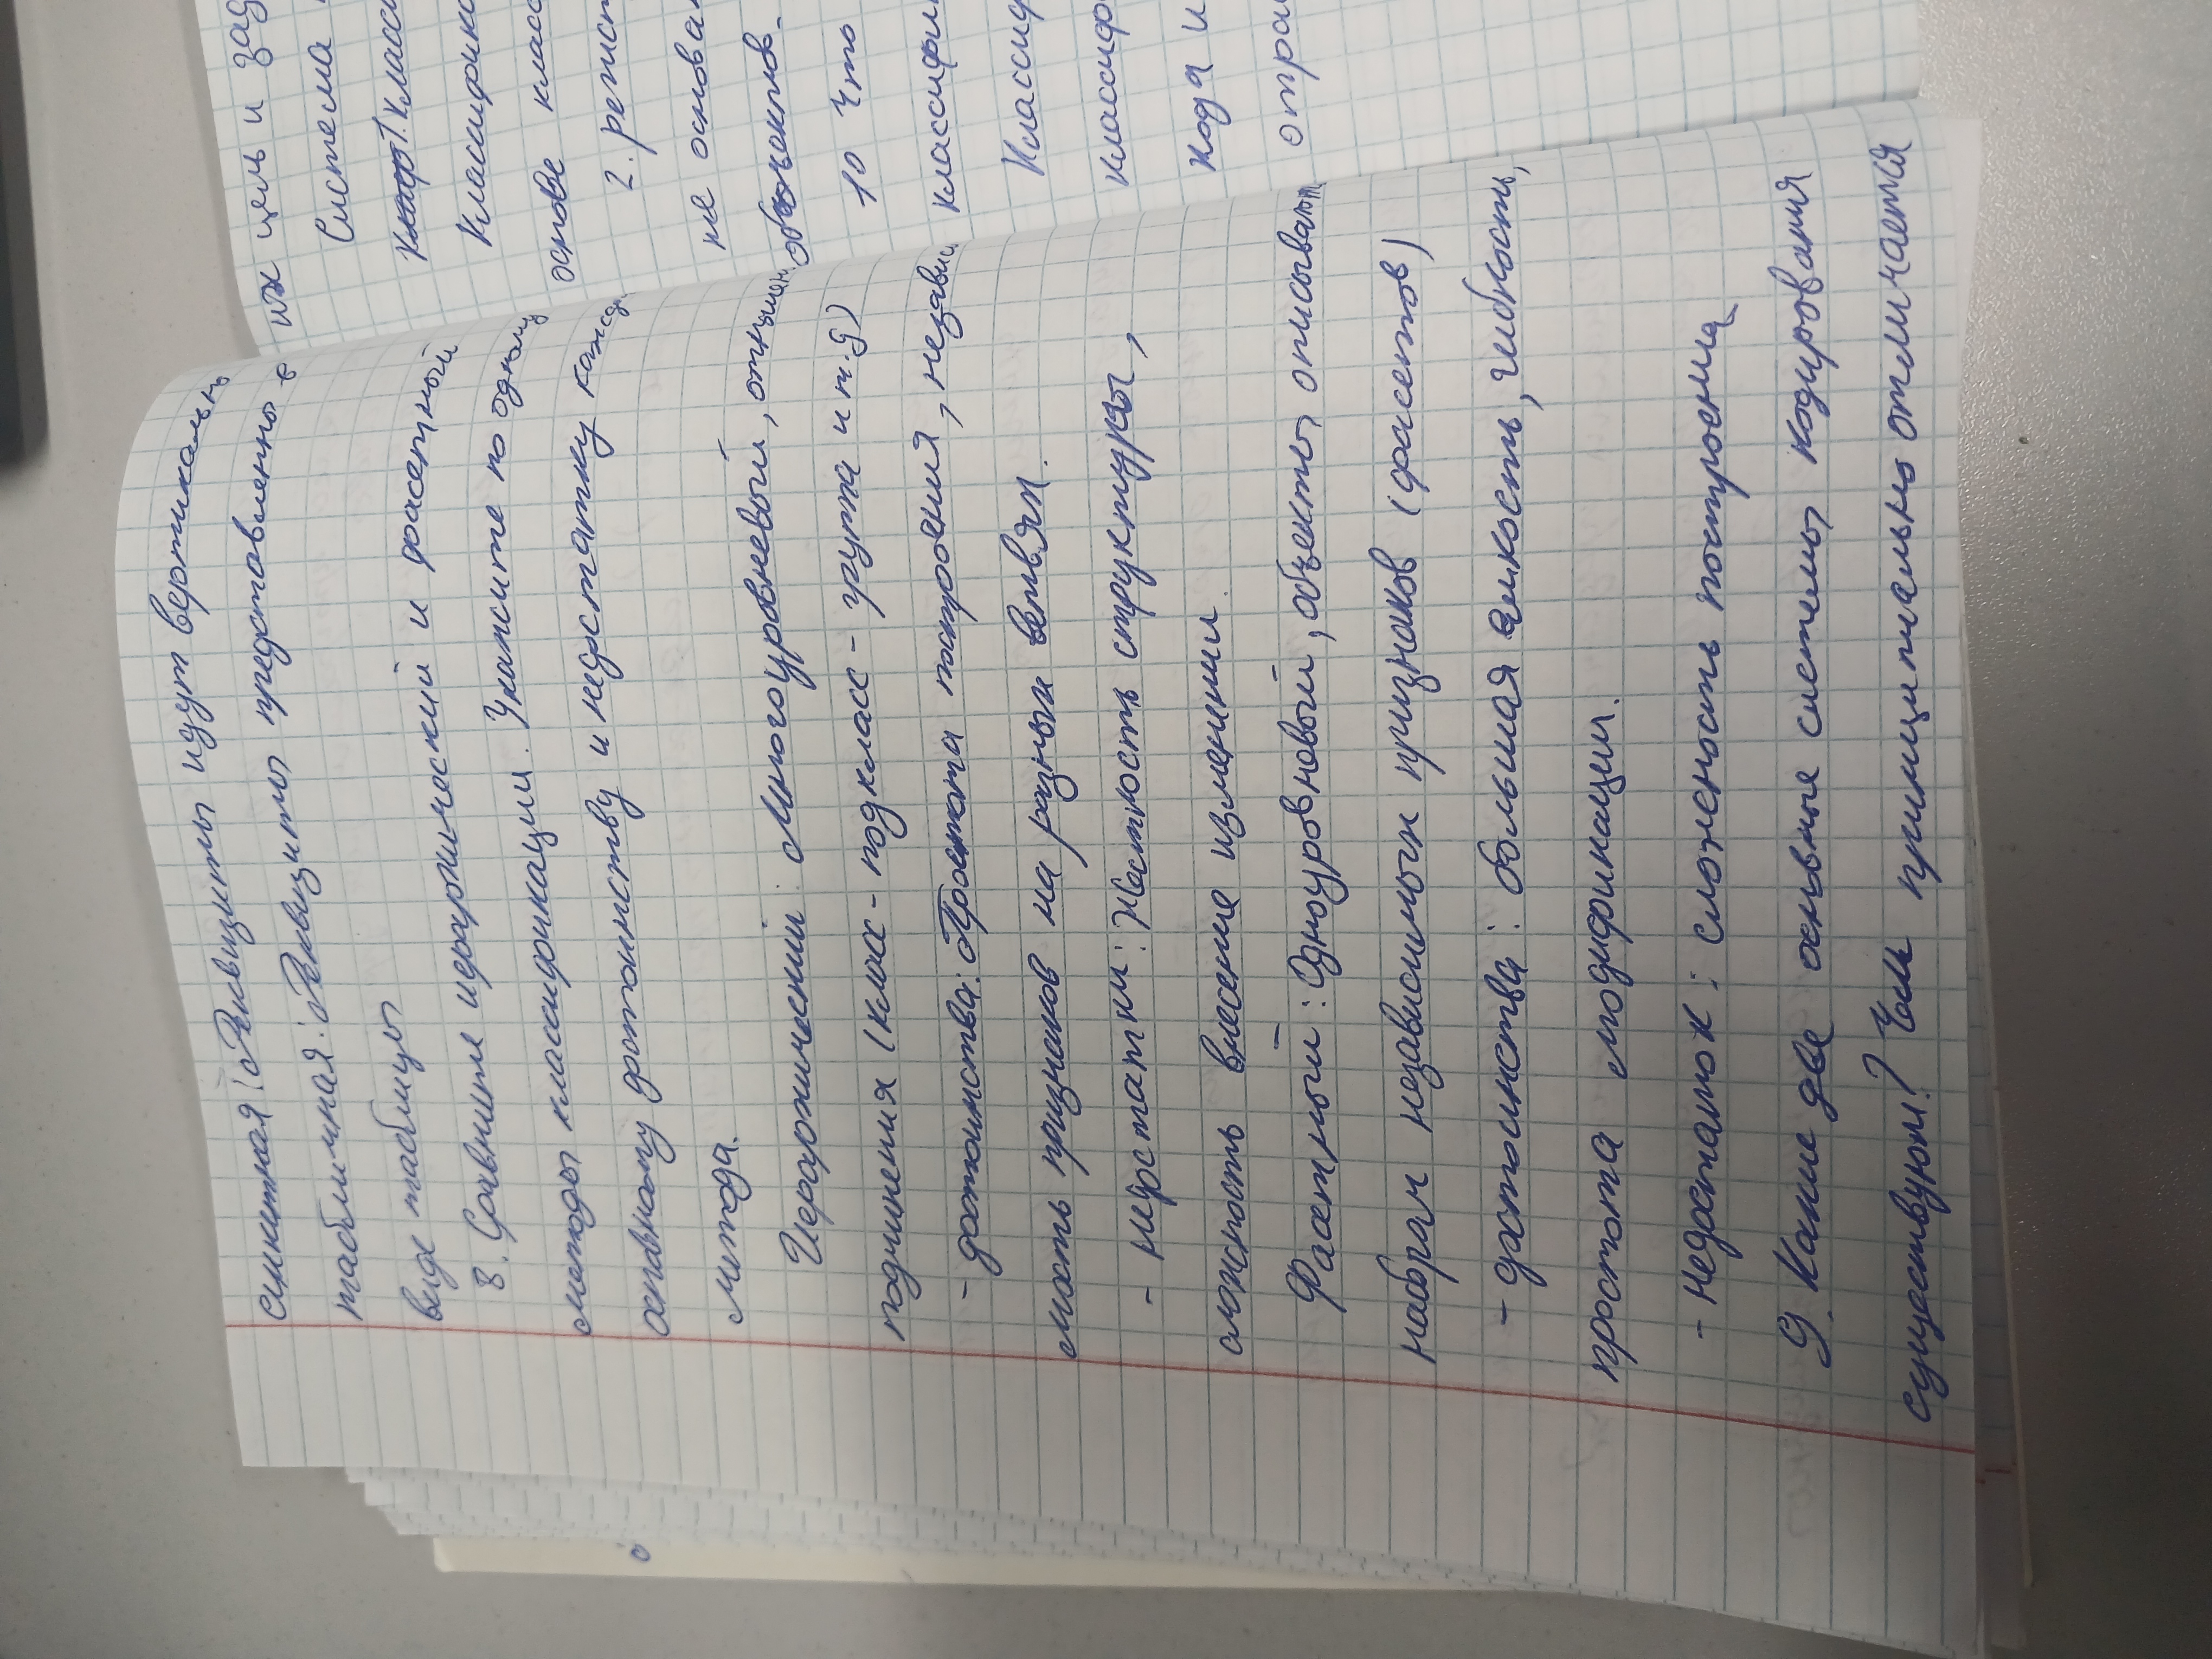 Анкетная: Реквизиты идут вертикально
табличная: Реквизиты представленны в
виде таблицы
8. Сравните иерархический и фасетный
методы классификации. Укажите по одному
основному достоинству и недостатку кажд
метода.
Иерархический: Многоуровневый, отношен
подчинения (класс - подкласс - группа и т.д)
- достоинства: Простота построения, независ
мость признаков на разных ветвях.
- недостатки: Жесткость структуры,
сложность внесение изменении.
Фасетный: Одноуровневый, объекты описывают
набрам независимых признаков (фасетов)
- достоинства: большая емкость, гибкость,
простота модификации.
- недостаток: сложность построения
9. Какие две основные системы кодирования
существуют? Чем принципиально отличается
их цель и зад
Система
1. Класси
Классифика
основе класс
2. регист
не основа
объектов.
10 Что
классифи
Классиф
классиф
кода и
отра